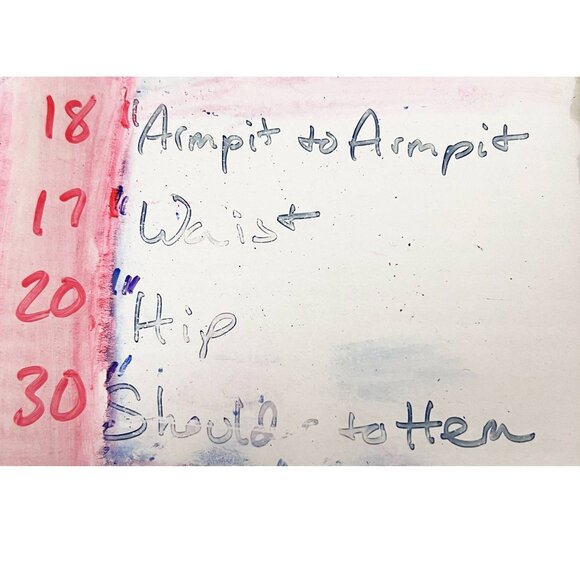 18" Armpit to Armpit
17" Waist
20" Hip
30" to Hem